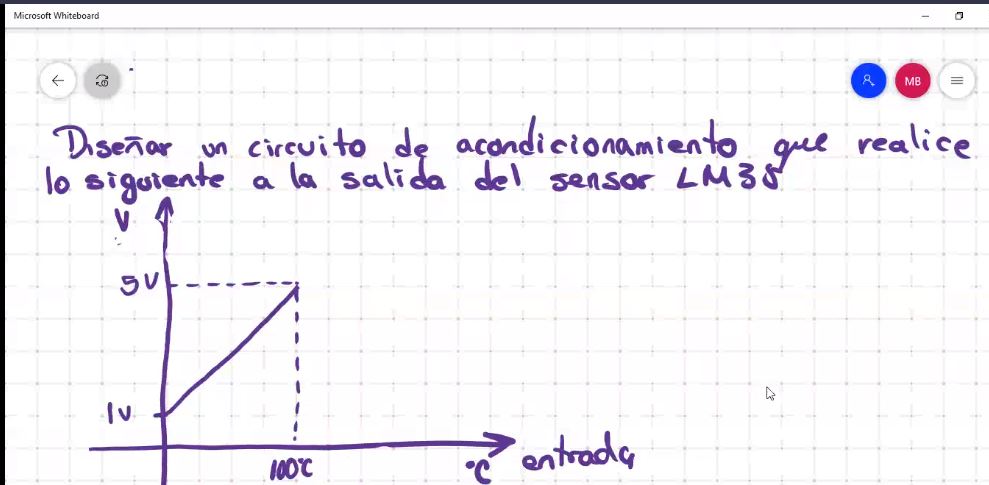 Microsoft Whiteboard
MB
Diseñar un circuito de acondicionamiento que realice
lo siguiente a la salida del sensor LM35
V
5V
1V
100°C
°C entrada